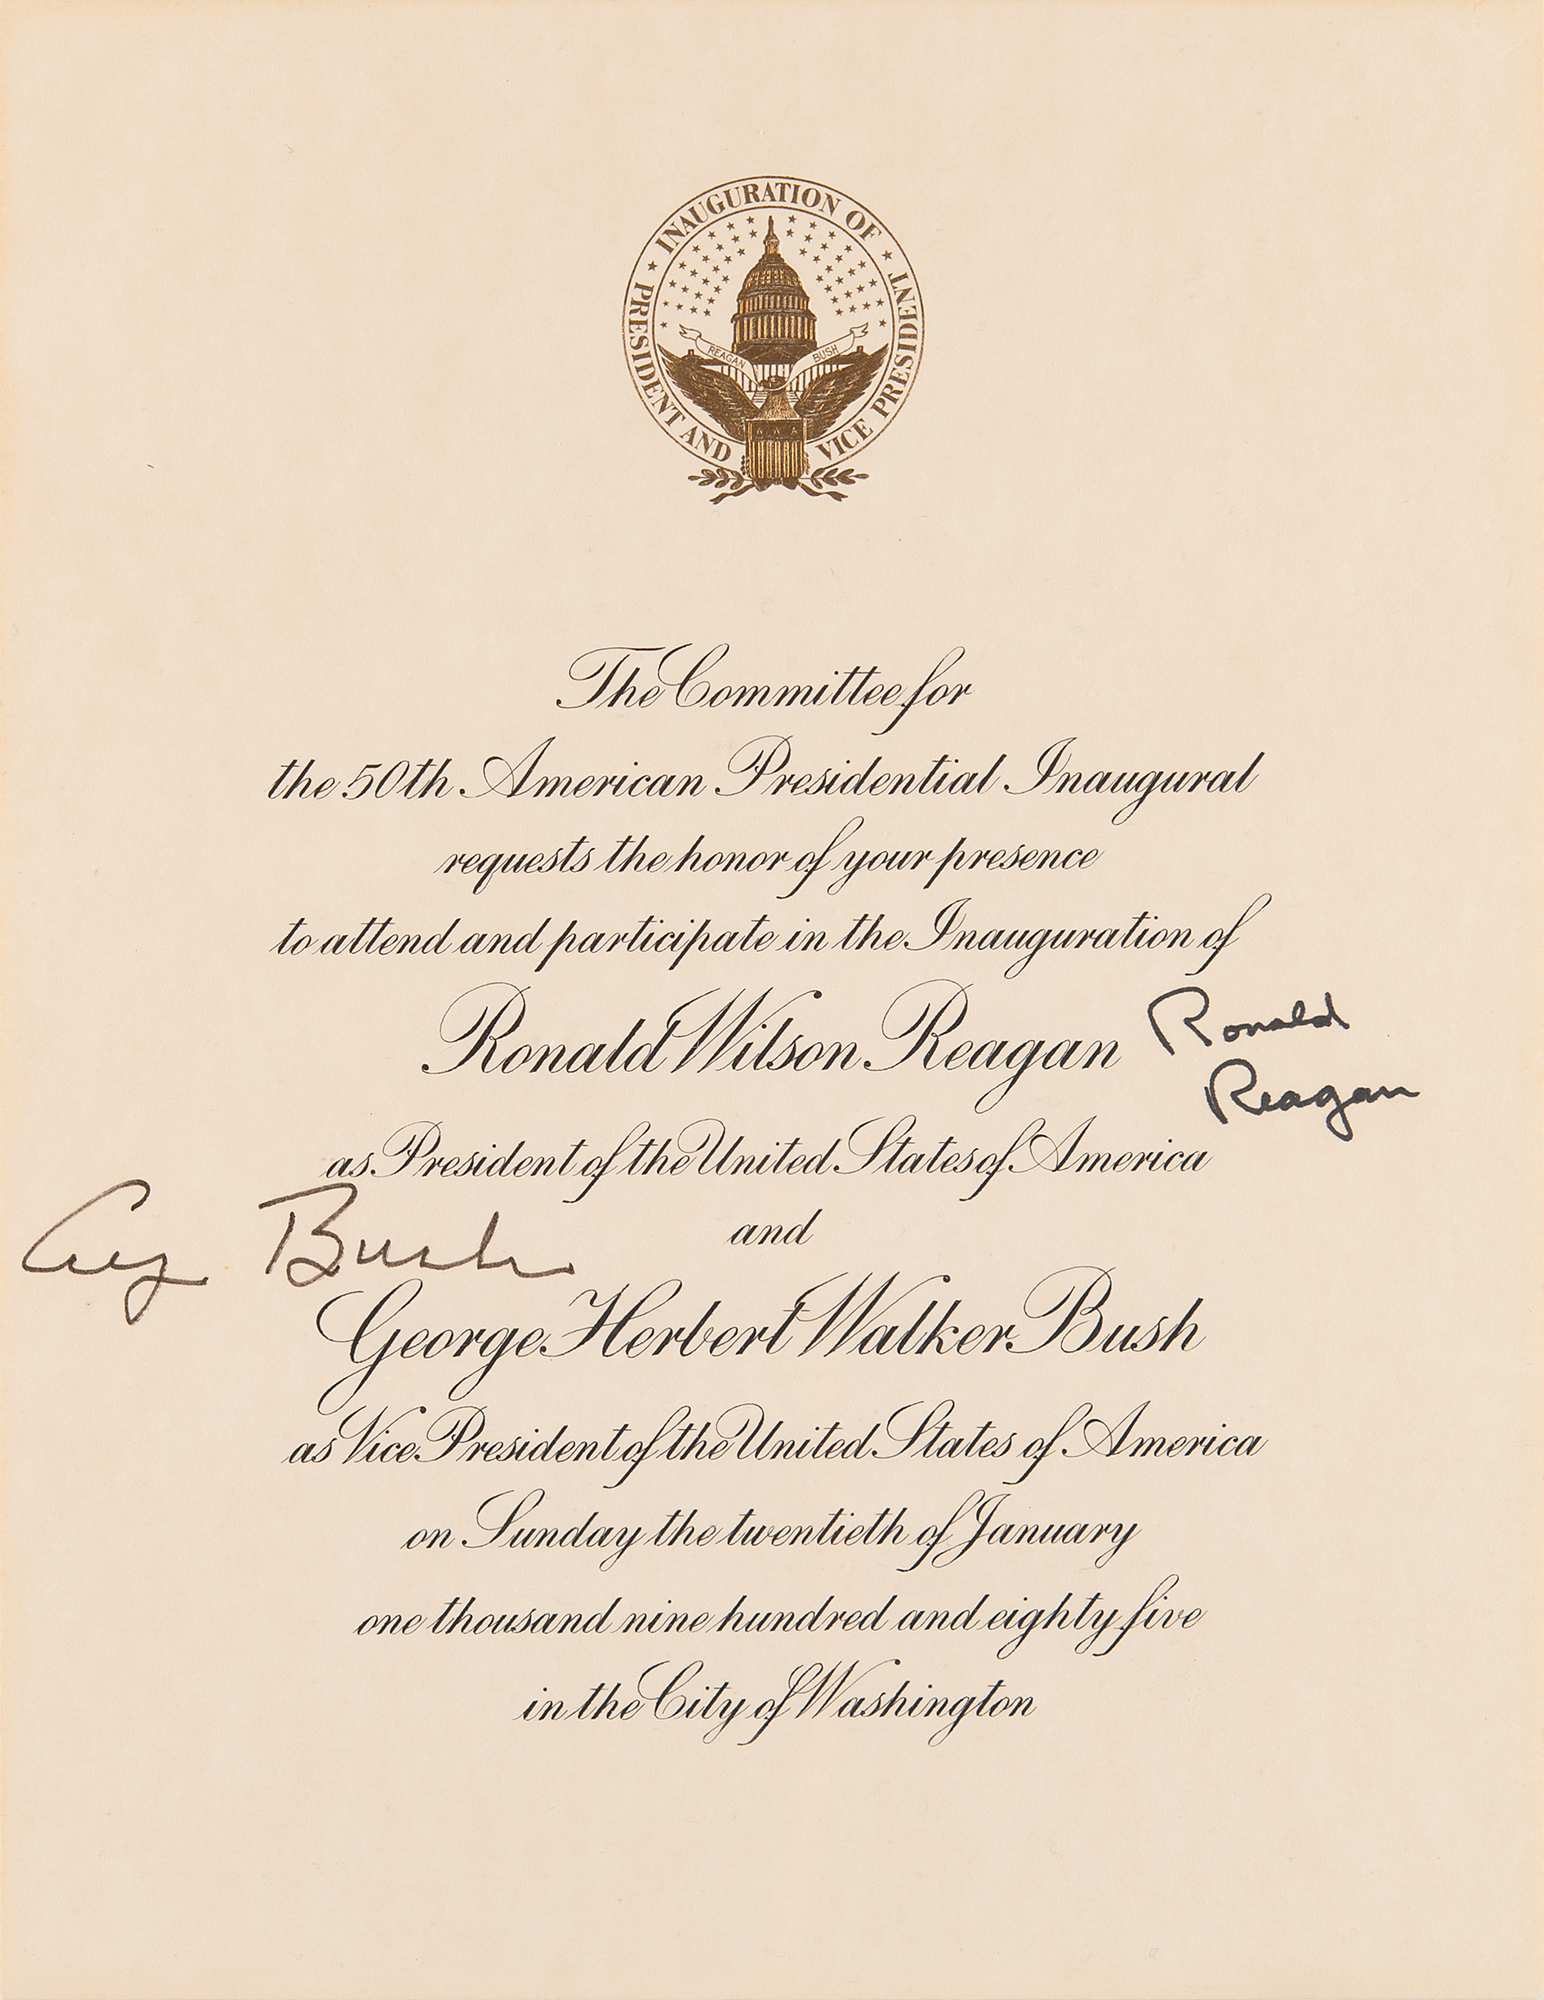 INAUGURATION OF
PRESIDENT AND VICE PRESIDENT
REAGAN BUSH
The Committee for
the 50th American Presidential Inaugural
requests the honor of your presence
to attend and participate in the Inauguration of
Ronald Wilson Reagan
Ronald
Reagan
as President of the United States of America
and
Bush
George Herbert Walker Bush
as Vice President of the United States of America
on Sunday the twentieth of January
one thousand nine hundred and eighty five
in the City of Washington